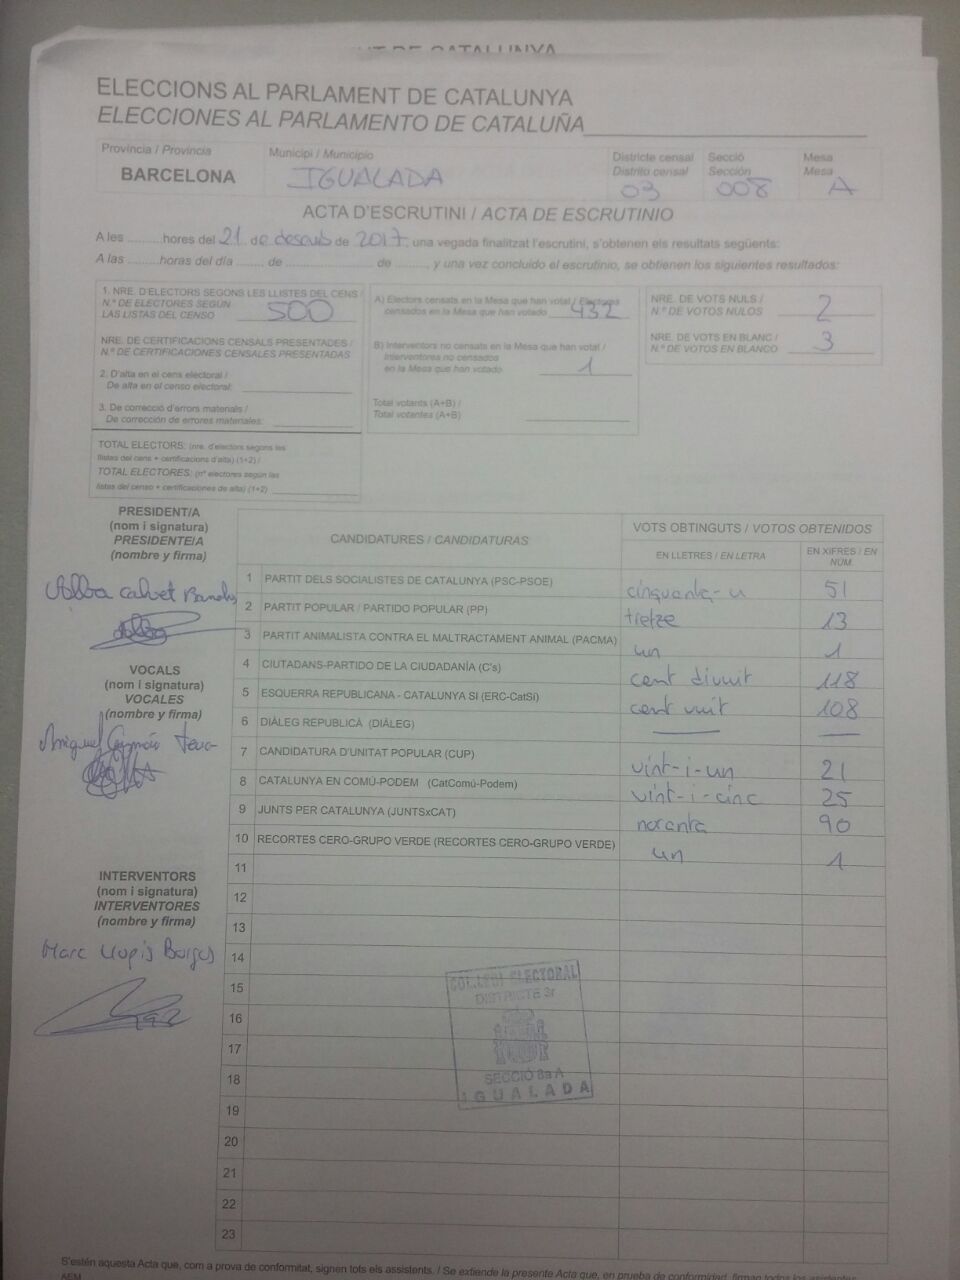 NT DE CATALUNYA
ELECCIONS AL PARLAMENT DE CATALUNYA
ELECCIONES AL PARLAMENTO DE CATALUÑA
Província / Provincia
BARCELONA
Municipi / Municipio
IGUALADA
Districte censal
Distrito censal
03
Secció
Sección
008
Mesa
Mesa
A
ACTA D'ESCRUTINI / ACTA DE ESCRUTINIO
A les ..........hores del 21 de desemb de 2017, una vegada finalitzat l'escrutini, s'obtenen els resultats següents:
A las ..........horas del día ........ de .......................... de ........., y una vez concluido el escrutinio, se obtienen los siguientes resultados:
1. NRE. D'ELECTORS SEGONS LES LLISTES DEL CENS /
N.º DE ELECTORES SEGÚN
LAS LISTAS DEL CENSO 500
NRE. DE CERTIFICACIONS CENSALS PRESENTADES /
N.º DE CERTIFICACIONES CENSALES PRESENTADAS
2. D'alta en el cens electoral /
De alta en el censo electoral:
3. De correcció d'errors materials /
De corrección de errores materiales:
TOTAL ELECTORS: (nre. d'electors segons les
llistes del cens + certificacions d'alta) (1+2) /
TOTAL ELECTORES: (nº electores según las
listas del censo + certificaciones de alta) (1+2)
A) Electors censats en la Mesa que han votat / Electores
censados en la Mesa que han votado 432
B) Interventors no censats en la Mesa que han votat /
Interventores no censados
en la Mesa que han votado 1
Total votants (A+B) /
Total votantes (A+B)
NRE. DE VOTS NULS /
N.º DE VOTOS NULOS 2
NRE. DE VOTS EN BLANC /
N.º DE VOTOS EN BLANCO 3
PRESIDENT/A
(nom i signatura)
PRESIDENTE/A
(nombre y firma)
Alba Calvet
VOCALS
(nom i signatura)
VOCALES
(nombre y firma)
Miquel
INTERVENTORS
(nom i signatura)
INTERVENTORES
(nombre y firma)
Marc Llopis
CANDIDATURES / CANDIDATURAS
VOTS OBTINGUTS / VOTOS OBTENIDOS
EN LLETRES / EN LETRA
EN XIFRES / EN NÚM.
1 PARTIT DELS SOCIALISTES DE CATALUNYA (PSC-PSOE) cinquanta-u 51
2 PARTIT POPULAR / PARTIDO POPULAR (PP) tretze 13
3 PARTIT ANIMALISTA CONTRA EL MALTRACTAMENT ANIMAL (PACMA) un 1
4 CIUTADANS-PARTIDO DE LA CIUDADANÍA (C's) cent divuit 118
5 ESQUERRA REPUBLICANA - CATALUNYA SÍ (ERC-CatSí) cent vuit 108
6 DIÀLEG REPUBLICÀ (DIÀLEG) — —
7 CANDIDATURA D'UNITAT POPULAR (CUP) vint-i-un 21
8 CATALUNYA EN COMÚ-PODEM (CatComú-Podem) vint-i-cinc 25
9 JUNTS PER CATALUNYA (JUNTSxCAT) noranta 90
10 RECORTES CERO-GRUPO VERDE (RECORTES CERO-GRUPO VERDE) un 1
11
12
13
14
15
16
17
18
19
20
21
22
23
COL·LEGI ELECTORAL
DISTRICTE 3r
SECCIÓ 8a A
IGUALADA
S'estén aquesta Acta que, com a prova de conformitat, signen tots els assistents. / Se extiende la presente Acta que, en prueba de conformidad, firman todos los